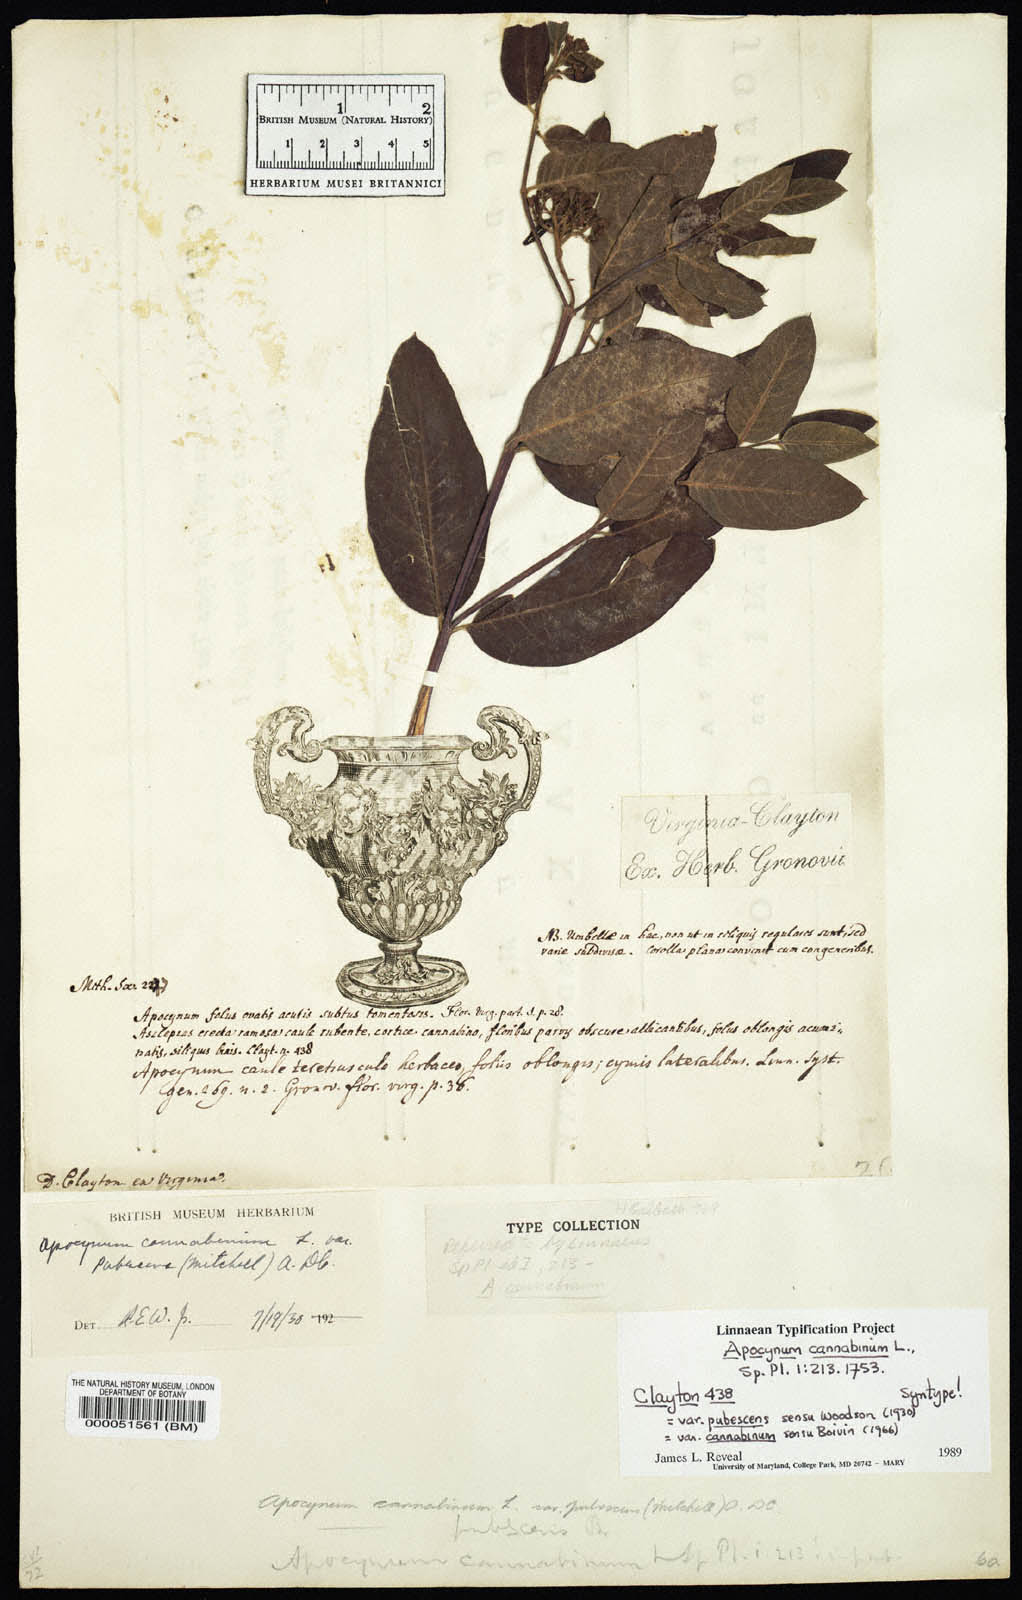 1 2
BRITISH MUSEUM (NATURAL HISTORY)
1 2 3 4 5
HERBARIUM MUSEI BRITANNICI
Virginia-Clayton
Ex. Herb. Gronovii
NB. Umbellæ in hac, non ut in reliquis regulares sunt, sed
variæ subdivisæ. Corolla plana convenit cum congeneribus.
Apocynum foliis ovatis acutis subtus tomentosis. Flor. Virg. part. 1. p. 28.
Asclepias erecta ramosa caule rubente, cortice cannabino, floribus parvis obscure albicantibus, foliis oblongis acumi-
natis, siliquis binis. Clayt. n. 438
Apocynum caule teretiusculo herbaceo, foliis oblongis; cymis lateralibus. Linn. Syst.
gen. 269. n. 2. Gronov. flor. virg. p. 36.
D. Clayton ex Virginia.
BRITISH MUSEUM HERBARIUM
Apocynum cannabinum L. var.
pubescens (Mitchell) A. DC.
DET. R.E.W. Jr. 7/19/30 192
TYPE COLLECTION
by Linnaeus
Sp Pl ed I, 213 -
A cannabinum
THE NATURAL HISTORY MUSEUM, LONDON
DEPARTMENT OF BOTANY
000051561 (BM)
Linnaean Typification Project
Apocynum cannabinum L.,
Sp. Pl. 1:213. 1753.
Clayton 438 Syntype!
= var. pubescens sensu Woodson (1930)
= var. cannabinum sensu Boivin (1966)
James L. Reveal 1989
University of Maryland, College Park, MD 20742 – MARY
Apocynum cannabinum L. var. pubescens (Mitchell) A. DC
pubescens Br.
Apocynum cannabinum L. Sp. Pl. i. 213